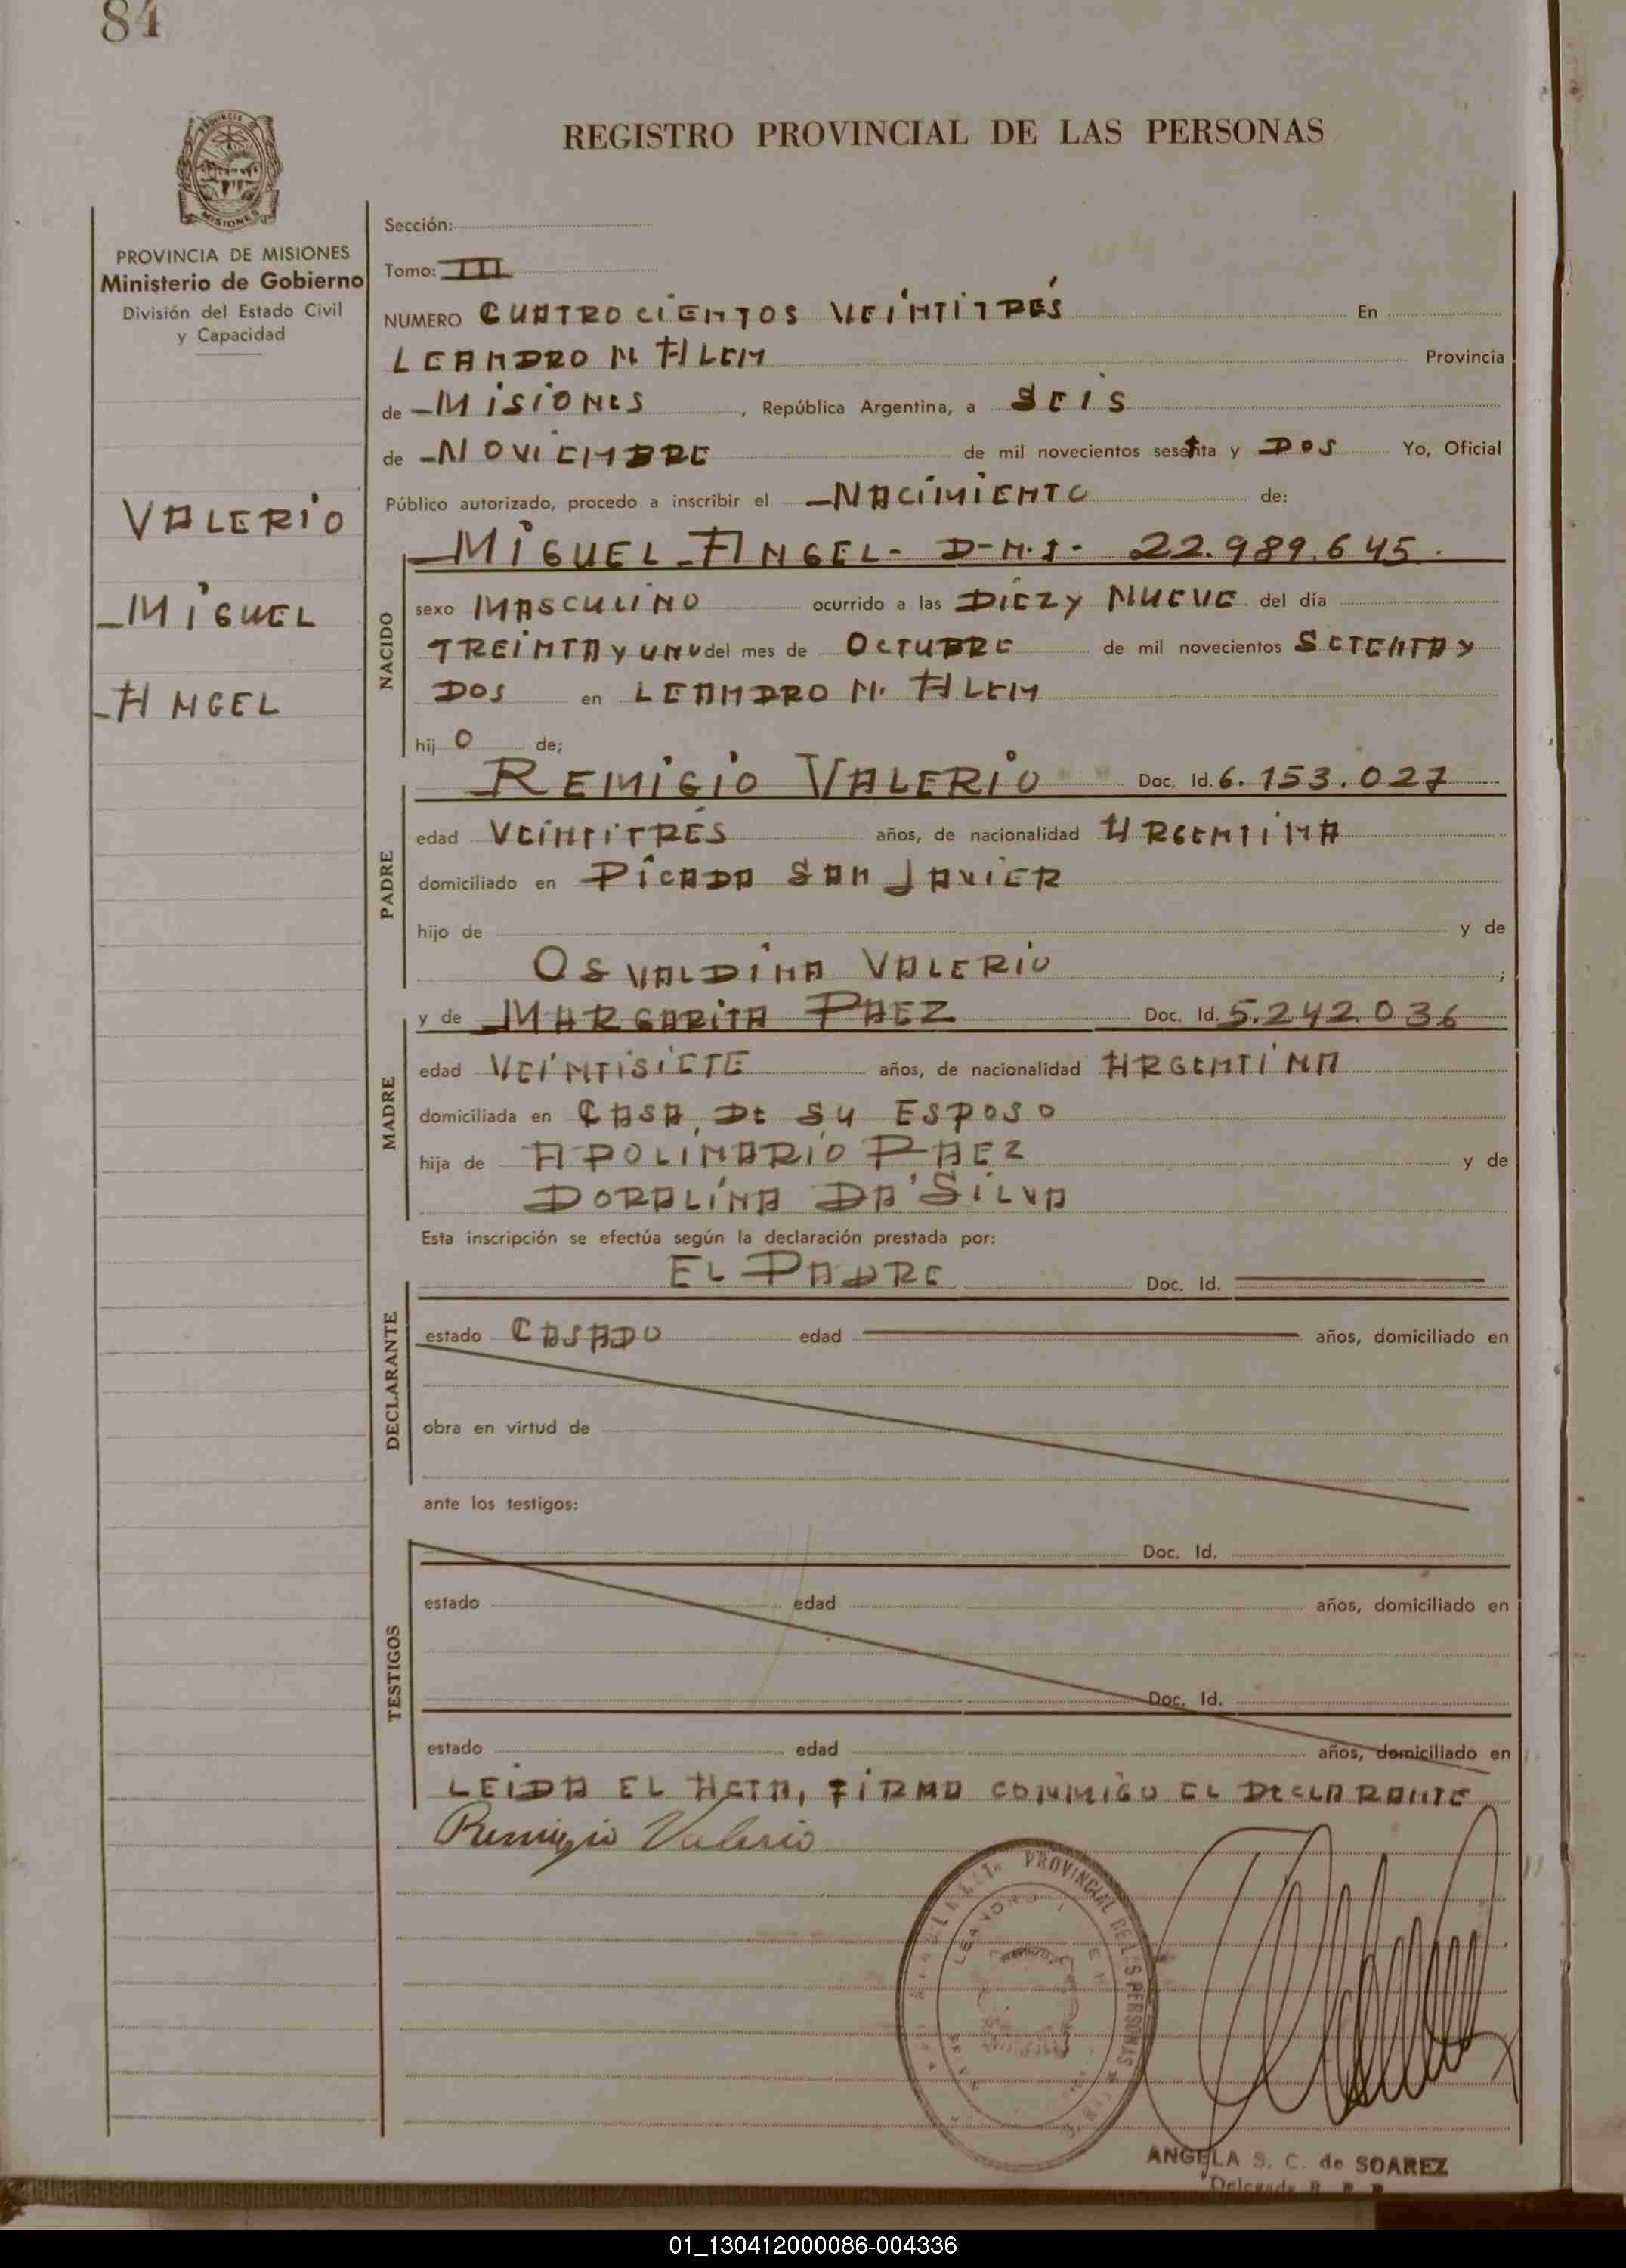 84
REGISTRO PROVINCIAL DE LAS PERSONAS
PROVINCIA DE MISIONES
Ministerio de Gobierno
División del Estado Civil
y Capacidad
VALERIO
MIGUEL
ANGEL
Sección:
Tomo: III
NUMERO CUATROCIENTOS VEINTITRÉS En
LEANDRO N. ALEM Provincia
de MISIONES, República Argentina, a SEIS
de NOVIEMBRE de mil novecientos sesenta y DOS Yo, Oficial
Público autorizado, procedo a inscribir el NACIMIENTO de:
MIGUEL ANGEL- D-N.I- 22.989.645.
NACIDO
sexo MASCULINO ocurrido a las DIEZ y NUEVE del día
TREINTA y UNO del mes de OCTUBRE de mil novecientos SETENTA y
DOS en LEANDRO N. ALEM
hij O de;
REMIGIO VALERIO Doc. Id. 6.153.027
PADRE
edad VEINTITRES años, de nacionalidad ARGENTINA
domiciliado en PICADA SAN JAVIER
hijo de y de
OSVALDINA VALERIO ;
y de MARGARITA PAEZ Doc. Id. 5.242.036
MADRE
edad VEINTISIETE años, de nacionalidad ARGENTINA
domiciliada en CASA, DE SU ESPOSO
hija de APOLINARIO PAEZ y de
DORALINA DA'SILVA
Esta inscripción se efectúa según la declaración prestada por:
EL PADRE Doc. Id.
DECLARANTE
estado CASADO edad años, domiciliado en
obra en virtud de
ante los testigos:
Doc. Id.
TESTIGOS
estado edad años, domiciliado en
Doc. Id.
estado edad años, domiciliado en
LEIDA EL ACTA, FIRMA CONMIGO EL DECLARANTE
Remigio Valerio
PROVINCIAL DE LAS PERSONAS
ANGELA S. C. de SOAREZ
01_130412000086-004336